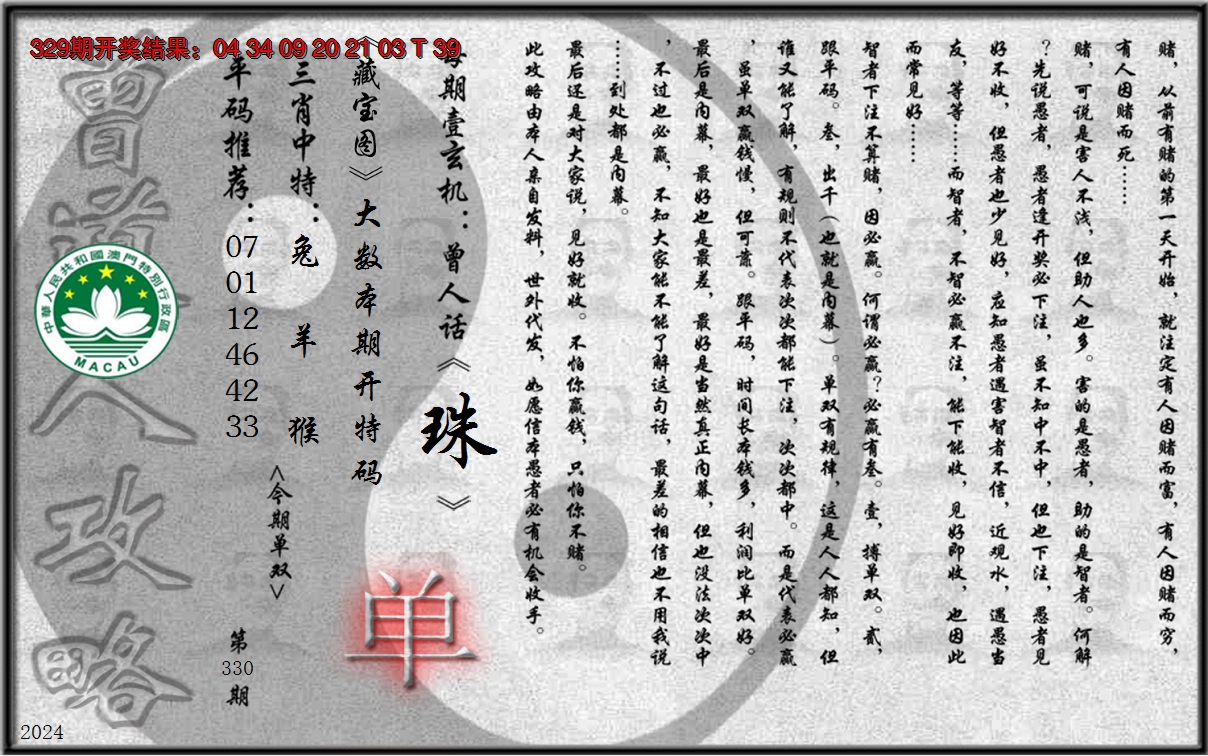 329期开奖结果：04 34 09 20 21 03 T 39
赌，从前有赌的第一天开始，就注定有人因赌而富，有人因赌而穷，
有人因赌而死……
赌，可说是害人不浅，但助人也多。害的是愚者，助的是智者。何解
？先说愚者，愚者逢开奖必下注，虽不知中不中，但也下注，愚者见
好不收，但愚者也少见好，应知愚者遇害智者不信，近观水，遇愚当
友，等等……而智者，不智必赢不注，能下能收，见好即收，也因此
而常见好……
智者下注不算赌，因必赢。何谓必赢？必赢有叁。壹，搏单双。贰，
跟平码。叁，出千（也就是内幕）。单双有规律，这是人人都知，但
谁又能了解，有规则不代表次次都能下注，次次都中。而是代表必赢
，虽单双赢钱慢，但可靠。跟平码，时间长本钱多，利润比单双好。
最后是内幕，最好也是最差，最好是当然真正内幕，但也没法次次中
，不过也必赢，不知大家能不能了解这句话，最差的相信也不用我说
……到处都是内幕。
最后还是对大家说，见好就收。不怕你赢钱，只怕你不赌。
此攻略由本人亲自发料，世外代发，如愿信本愚者必有机会收手。
每期壹玄机：曾人话《珠》
《藏宝图》大数本期开特码
单
三肖中特：兔 羊 猴
<今期单双>
平码推荐：
07
01
12
46
42
33
第
330
期
曾道人攻略
中華人民共和國澳門特別行政區
MACAU
2024